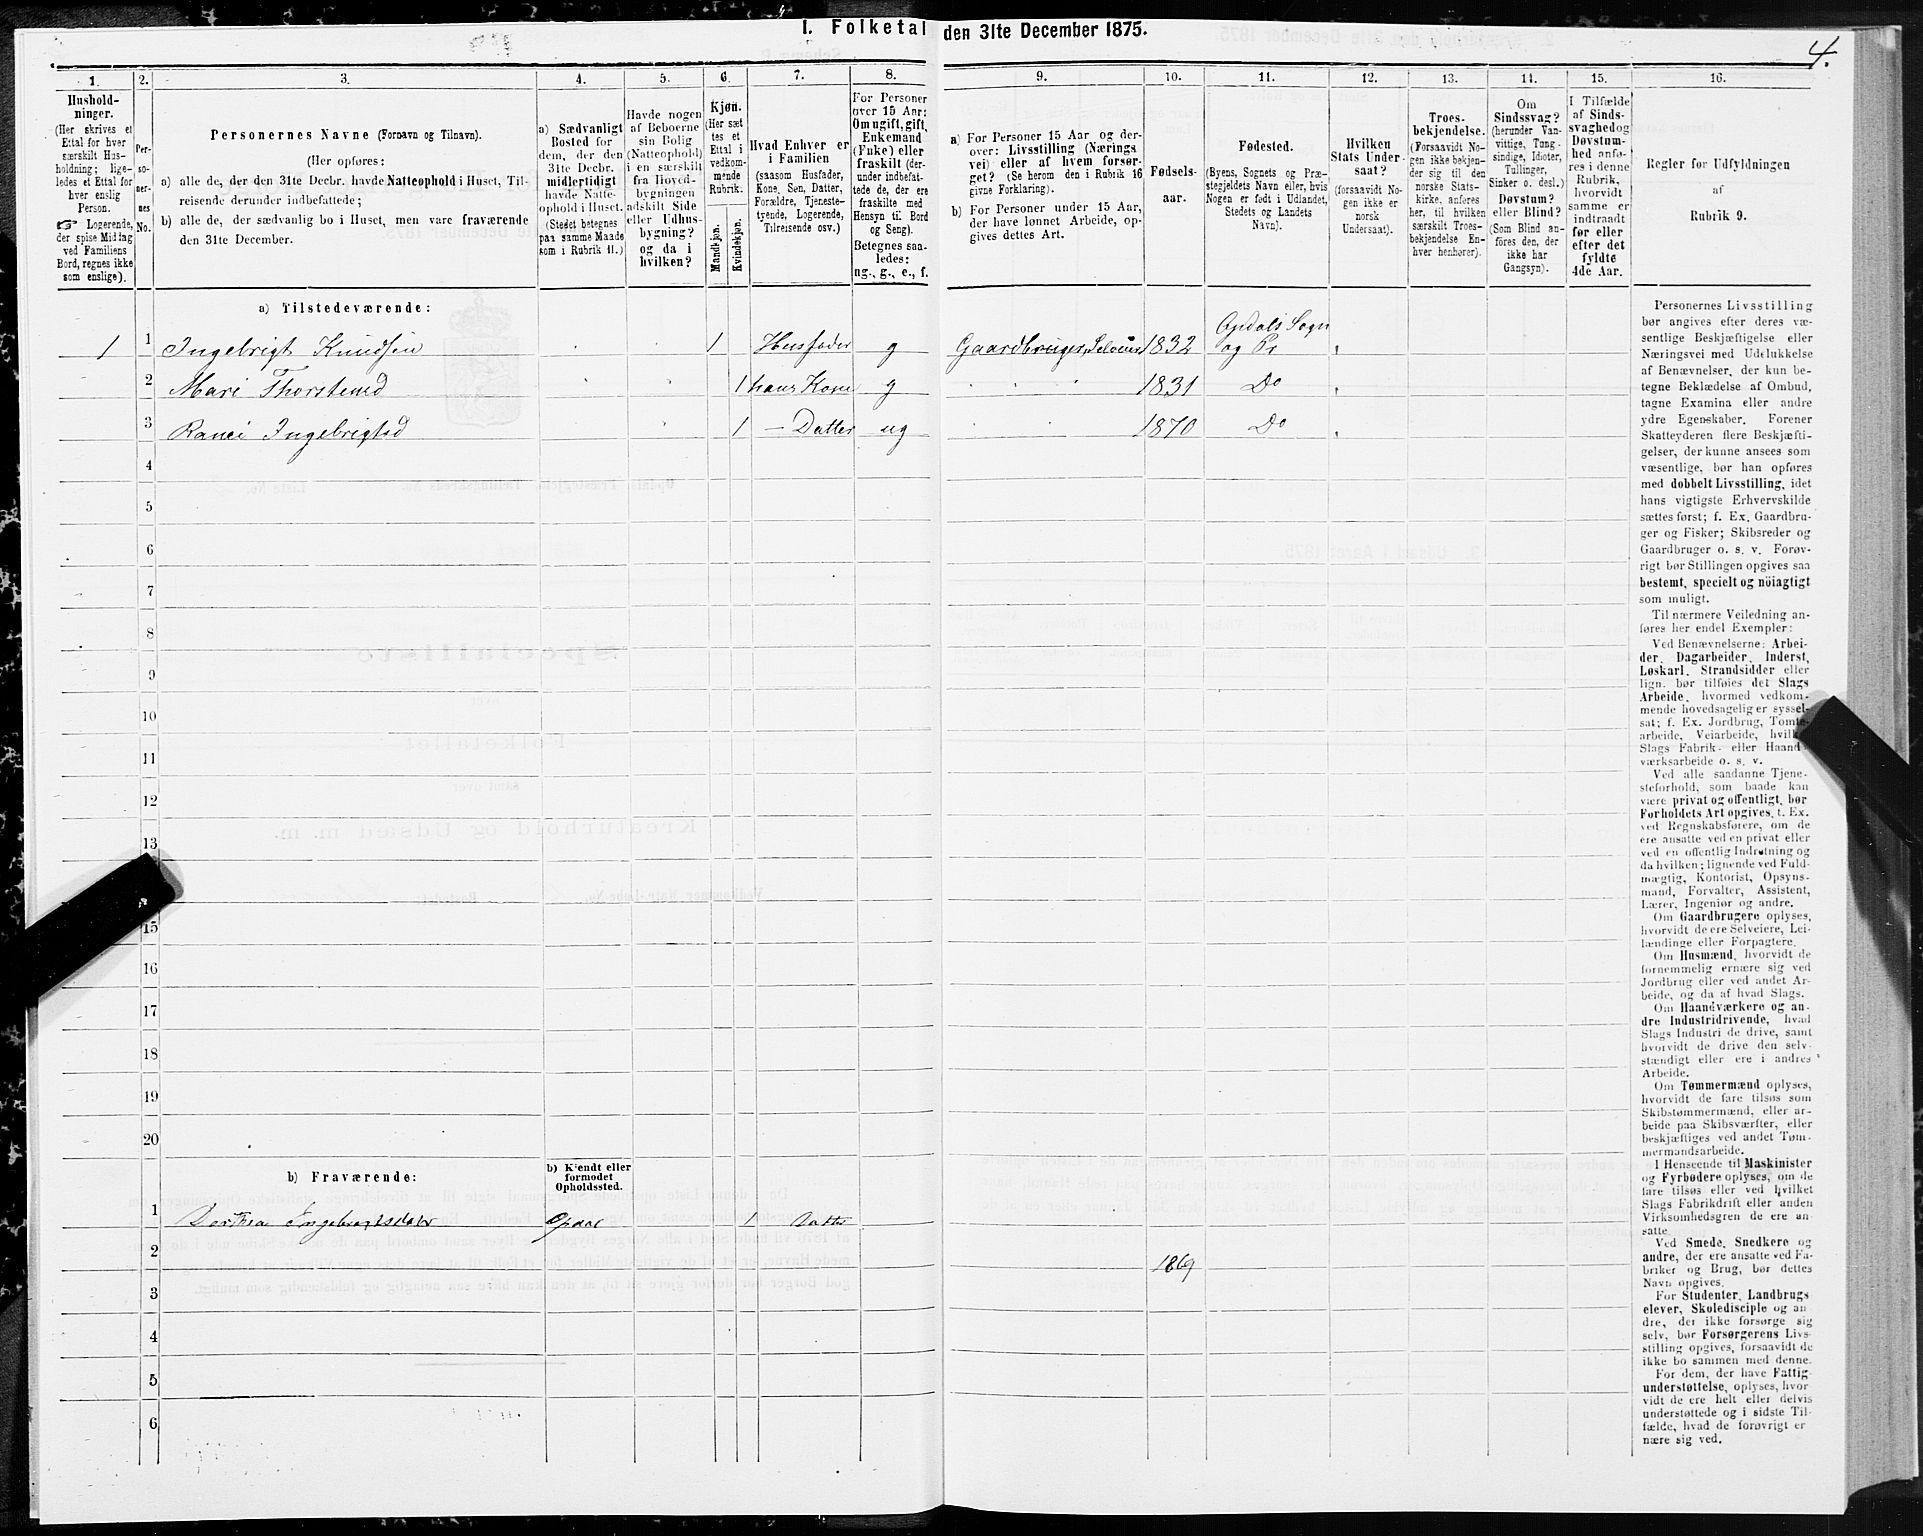 1. Folketal den 31te December 1875.
4.
1.
2.
3.
4.
5.
6.
7.
8.
9.
10.
11.
12.
13.
14.
15.
16.
Hushold-
ninger.
(Her skrives et
Ettal for hver
særskilt Hus-
holdning; lige-
ledes et Ettal for
hver enslig
Person.
☞ Logerende,
der spise Middag
ved Familiens
Bord, regnes ikke
som enslige).
Per-
so-
ner-
nes
No.
Personernes Navne (Fornavn og Tilnavn).
(Her opføres:
a) alle de, der den 31te Decbr. havde Natteophold i Huset, Til-
reisende derunder indbefattede;
b) alle de, der sædvanlig bo i Huset, men vare fraværende
den 31te December.
a) Sædvanligt
Bosted for
dem, der den
31te Decbr.
midlertidigt
havde Natte-
ophold i Huset.
(Stedet betegnes
paa samme Maade
som i Rubrik 11.)
Havde nogen
af Beboerne
sin Bolig
(Natteophold)
i en særskilt
fra Hoved-
bygningen
adskilt Side
eller Udhus-
bygning?
og da i
hvilken?
Kjøn.
(Her sæt-
tes et
Ettal i
vedkom-
mende
Rubrik.
Mandkjøn.
Kvindekjøn.
Hvad Enhver er
i Familien
(saasom Husfader,
Kone, Søn, Datter,
Forældre, Tjeneste-
tyende, Logerende,
Tilreisende osv.)
For Personer
over 15 Aar:
Om ugift, gift,
Enkemand
(Enke) eller
fraskilt (der-
under indbefat-
tede de, der ere
fraskilte med
Hensyn til Bord
og Seng).
Betegnes saa-
ledes:
ug., g., e., f.
a) For Personer 15 Aar og der-
over: Livsstilling (Nærings
vei) eller af hvem forsør-
get? (Se herom den i Rubrik 16
givne Forklaring).
b) For Personer under 15 Aar,
der have lønnet Arbeide, op-
gives dettes Art.
Fødsels-
aar.
Fødested.
(Byens, Sognets og Præ-
stegjeldets Navn eller, hvis
Nogen er født i Udlandet,
Stedets og Landets
Navn).
Hvilken
Stats Under-
saat?
(forsaavidt No-
gen ikke er
norsk
Undersaat).
Troes-
bekjendelse.
(Forsaavidt No-
gen ikke bekjen-
der sig til den
norske Stats-
kirke, anføres
her, til hvilken
særskilt Troes-
bekjendelse En-
hver henhører).
Om
Sindssvag?
(herunder Van-
vittige, Tung-
sindige, Idioter,
Tullinger,
Sinker o. desl.)
Døvstum?
eller Blind?
(Som Blind an-
føres den, der
ikke har
Gangsyn).
I Tilfælde
af Sinds-
svaghed og
Døvstum-
hed anfø-
res i denne
Rubrik,
hvorvidt
samme er
indtraadt
før eller
efter det
fyldte
4de Aar.
Regler for Udfyldningen
af
Rubrik 9.
a) Tilstedeværende:
1 1 Ingebrigt Knudsen 1 Husfader g Gaardbruger, Seleier 1832 Opdals Sogn
og Pr
2 Mari Thorstensd 1 hans Kone g 1831 Do
3 Ranei Ingebrigtsd 1 – Datter ug 1870 Do
4
5
6
7
8
9
10
11
12
13
15
16
17
18
19
20
b) Fraværende:
b) Kjendt eller
formodet
Opholdssted.
1 Berthea Ingebrigtsdatr Opdal 1 Datter
2 1869
3
4
5
6
Personernes Livsstilling
bør angives efter deres væ-
sentlige Beskjæftigelse eller
Næringsvei med Udelukkelse
af Benævnelser, der kun be-
tegne Beklædelse af Ombud,
tagne Examina eller andre
ydre Egenskaber. Forener
Skatteyderen flere Beskjæfti-
gelser, der kunne ansees som
væsentlige, bør han opføres
med dobbelt Livsstilling, idet
hans vigtigste Erhvervskilde
sættes først; f. Ex. Gaardbru-
ger og Fisker; Skibsreder og
Gaardbruger o. s. v. Forøv-
rigt bør Stillingen opgives saa
bestemt, specielt og nöiagtigt
som muligt.
Til nærmere Veiledning an-
føres her endel Exempler:
Ved Benævnelserne: Arbei-
der, Dagarbeider, Inderst,
Løskarl, Strandsidder eller
lign. bør tilføies det Slags
Arbeide, hvormed vedkom-
mende hovedsagelig er syssel-
sat; f. Ex. Jordbrug, Tomte-
arbeide, Veiarbeide, hvilket
Slags Fabrik- eller Haand-
værksarbeide o. s. v.
Ved alle saadanne Tjene-
steforhold, som baade kan
være privat og offentligt, bør
Forholdets Art opgives, t. Ex.
ved Regnskabsførere, om de
ere ansatte ved en privat eller
ved en offentlig Indretning og
da hvilken; lignende ved Fuld-
mægtig, Kontorist, Opsyns-
mand, Forvalter, Assistent,
Lærer, Ingeniør og andre.
Om Gaardbrugere oplyses,
hvorvidt de ere Selveiere, Lei-
lændinge eller Forpagtere.
Om Husmænd, hvorvidt de
fornemmelig ernære sig ved
Jordbrug eller ved andet Ar-
beide, og da af hvad Slags.
Om Haandværkere og an-
dre Industridrivende, hvad
Slags Industri de drive, samt
hvorvidt de drive den selv-
stændigt eller ere i andres
Arbeide.
Om Tømmermænd oplyses,
hvorvidt de fare tilsøs som
Skibstømmermænd, eller ar-
beide paa Skibsværfter, eller
beskjæftiges ved andet Tøm-
mermandsarbeide.
I Henseende til Maskinister
og Fyrbødere oplyses, om de
fare tilsøs eller ved hvilket
Slags Fabrikdrift eller anden
Virksomhedsgren de ere an-
satte.
Ved Smede, Snedkere og
andre, der ere ansatte ved Fa-
briker og Brug, bør dettes
Navn opgives.
For Studenter, Landbrugs
elever, Skoledisciple og an
dre, der ikke forsørge sig
selv, bør Forsørgerens Livs-
stilling opgives, forsaavidt de
ikke bo sammen med denne.
For dem, der have Fattig-
understøttelse, oplyses, hvor-
vidt de ere helt eller delvis
understøttede og i sidste Til-
fælde, hvad de forøvrigt er-
nære sig ved.